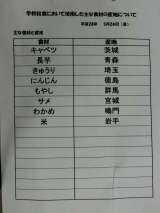 学校給食において使用した主な食材の産地について
平成24年 5月25日(金)
主な食材と産地
食材 産地
キャベツ 茨城
長芋 青森
きゅうり 埼玉
にんじん 徳島
もやし 群馬
サメ 宮城
わかめ 鳴門
米 岩手